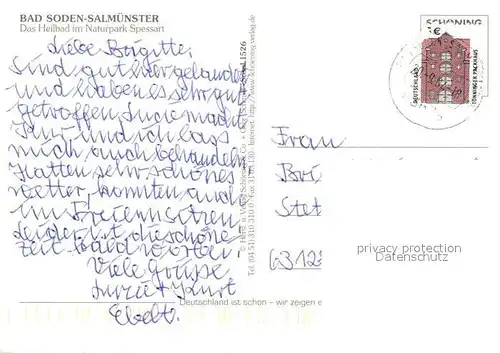 BAD SODEN-SALMÜNSTER
Das Heilbad im Naturpark Spessart
Liebe Brigitte
Sind gut hier gelandet
und haben es sehr gut
getroffen. Susie macht
Kur und ich lass
mich auch behandeln
Hatten sehr schönes
Wetter, konnten auch
im Freien sitzen
Leider ist die schöne
Zeit bald vorbei
Viele Grüße
+ Kurt
Deutschland ist schön – wir zeigen e
SCHÖNING
DEUTSCHLAND
TÖNNINGER PACKHAUS
Frau
Bri
Stet
63128
privacy protection
Datenschutz